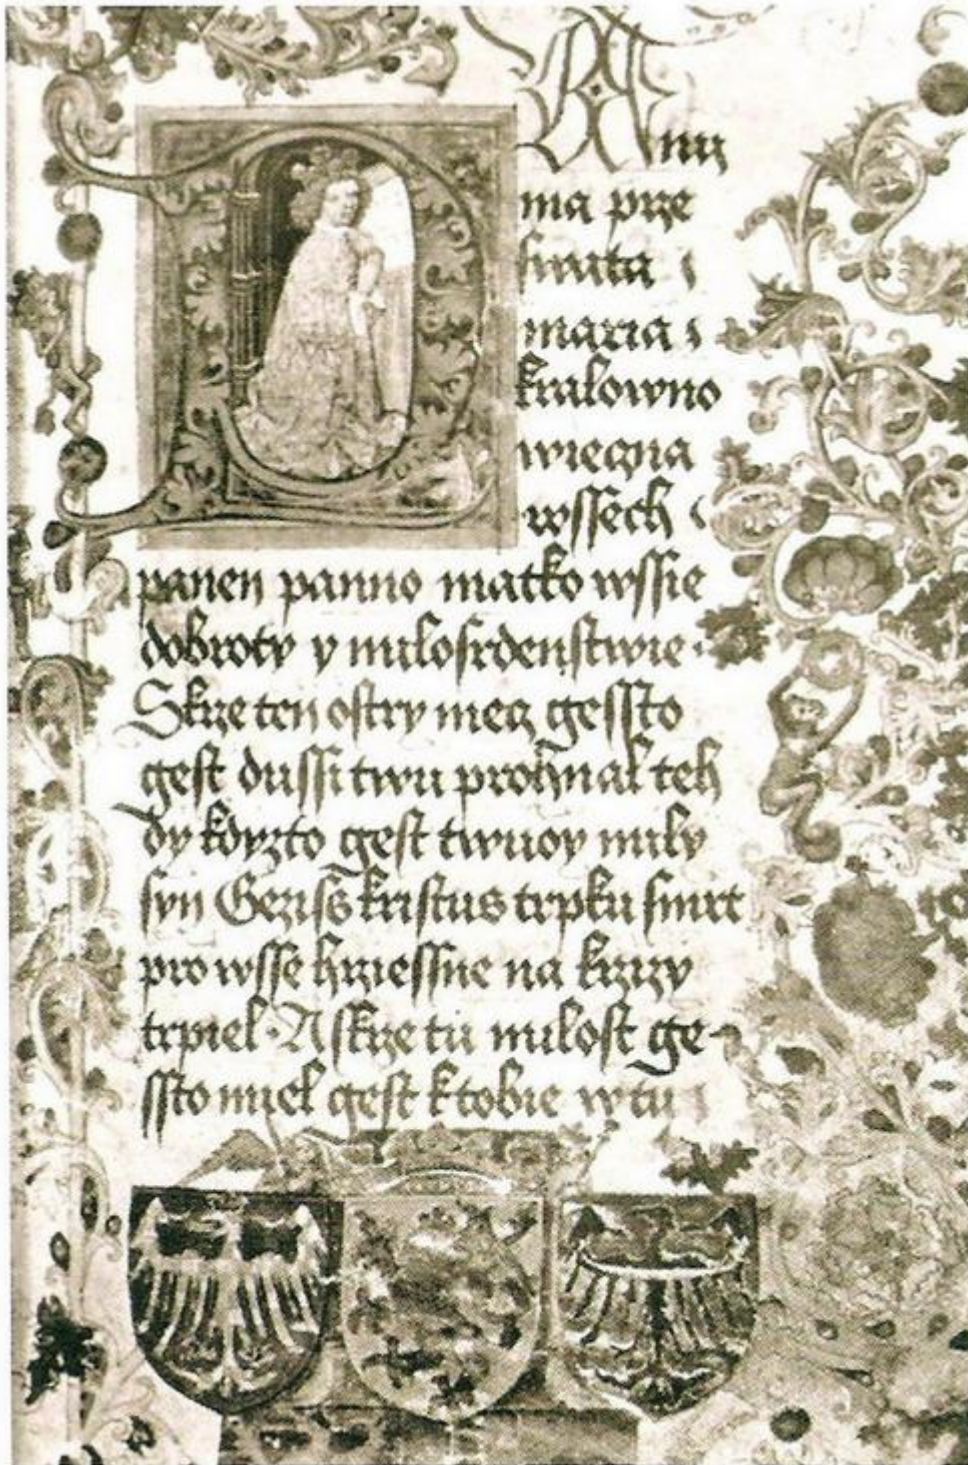 Any
ma prze
swata
maria
kralowno
wieczna
wssech
panen panno matko wssie
dobroty y milosrdenstwie
Skrze ten ostry mecz gessto
gest dussi twu prohnal teh
dy kdyzto gest twuoy mily
syn Geziss kristus trpku smrt
pro wsse hrziessne na krzizy
trpiel · A skrze tu milost ge-
ssto miel gest k tobie w tu